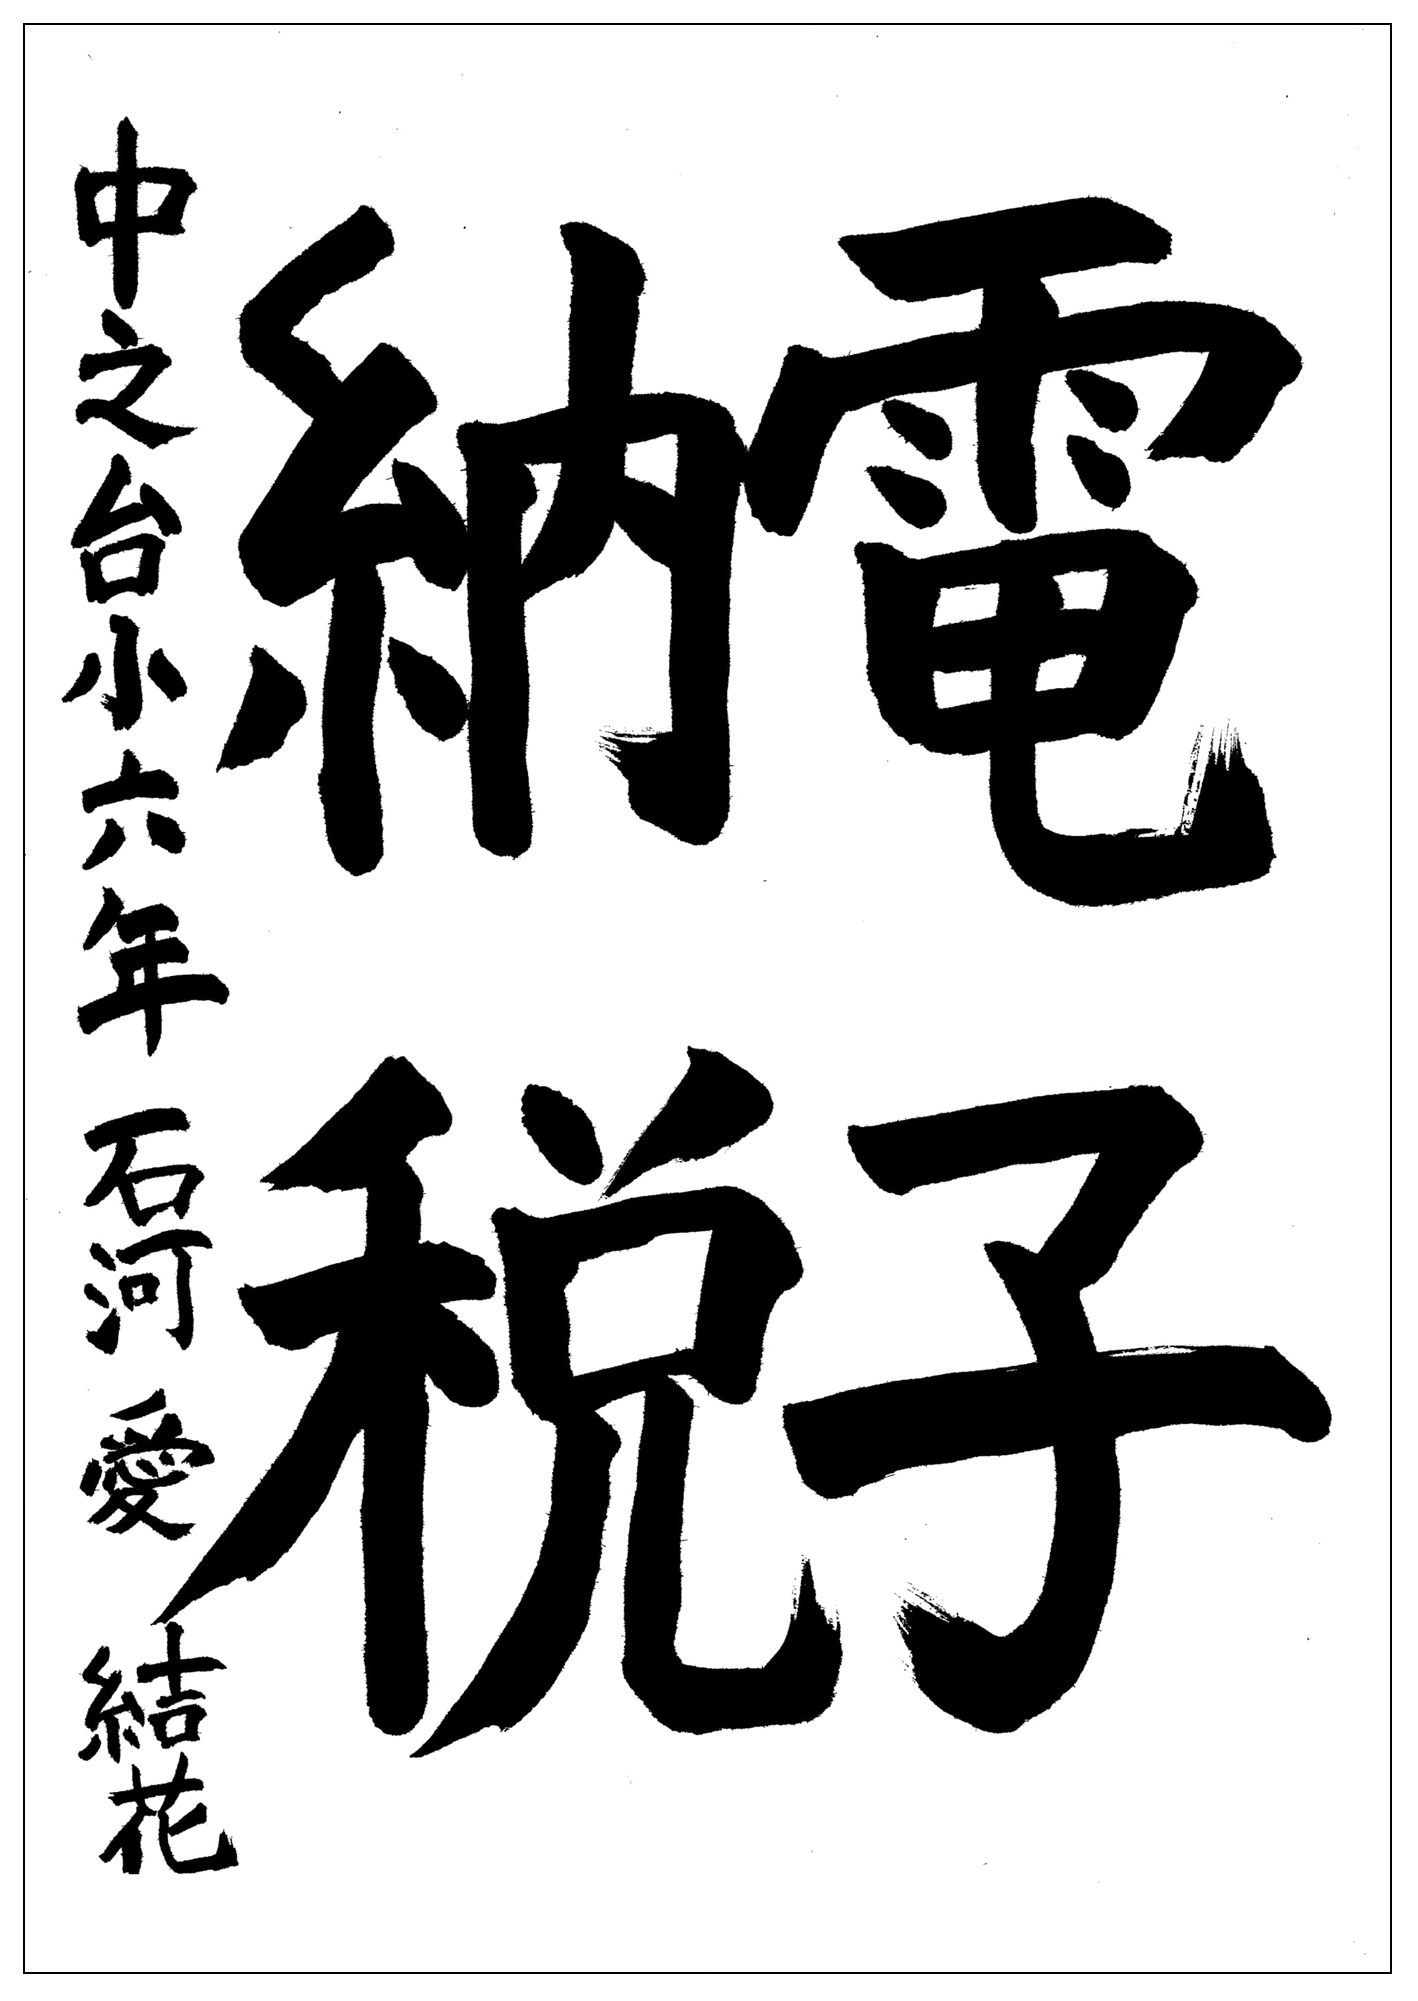 電子
納税
中之台小六年 石河 愛 結花